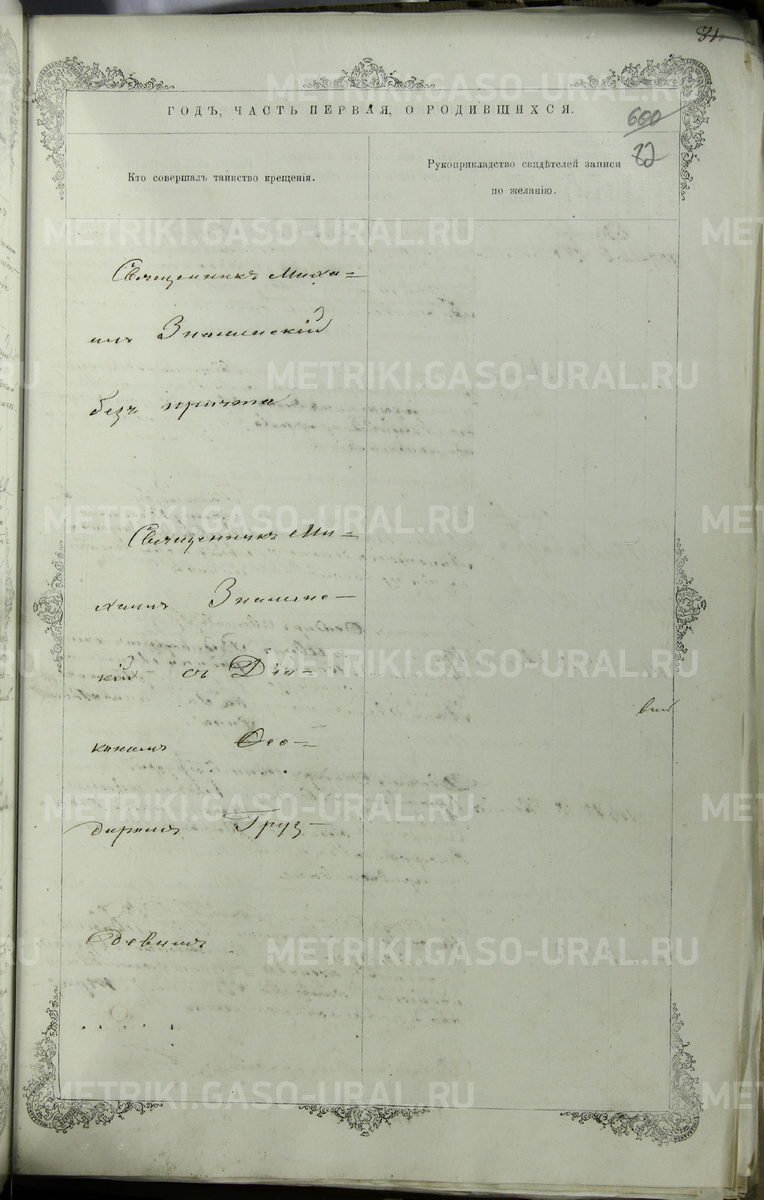 81
ГОДЪ, ЧАСТЬ ПЕРВАЯ, О РОДИВШИХСЯ.
600
82
Кто совершалъ таинство крещенія.
Рукоприкладство свидѣтелей записи
по желанію.
Священникъ Миха-
илъ Знаменскій
безъ причта
Священникъ Ми-
хаилъ Знаменс-
кій съ Діа-
кономъ Ѳео-
доромъ Груз-
девымъ
METRIKI.GASO-URAL.RU